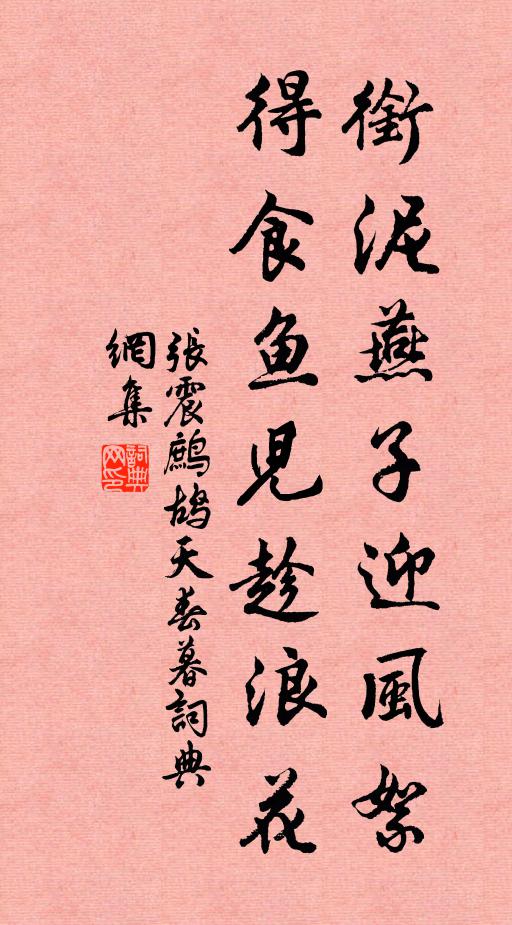 銜泥燕子迎風絮
得食鱼児趁浪花
張震鷓鴣天春暮詞典
網集
詞典
网印